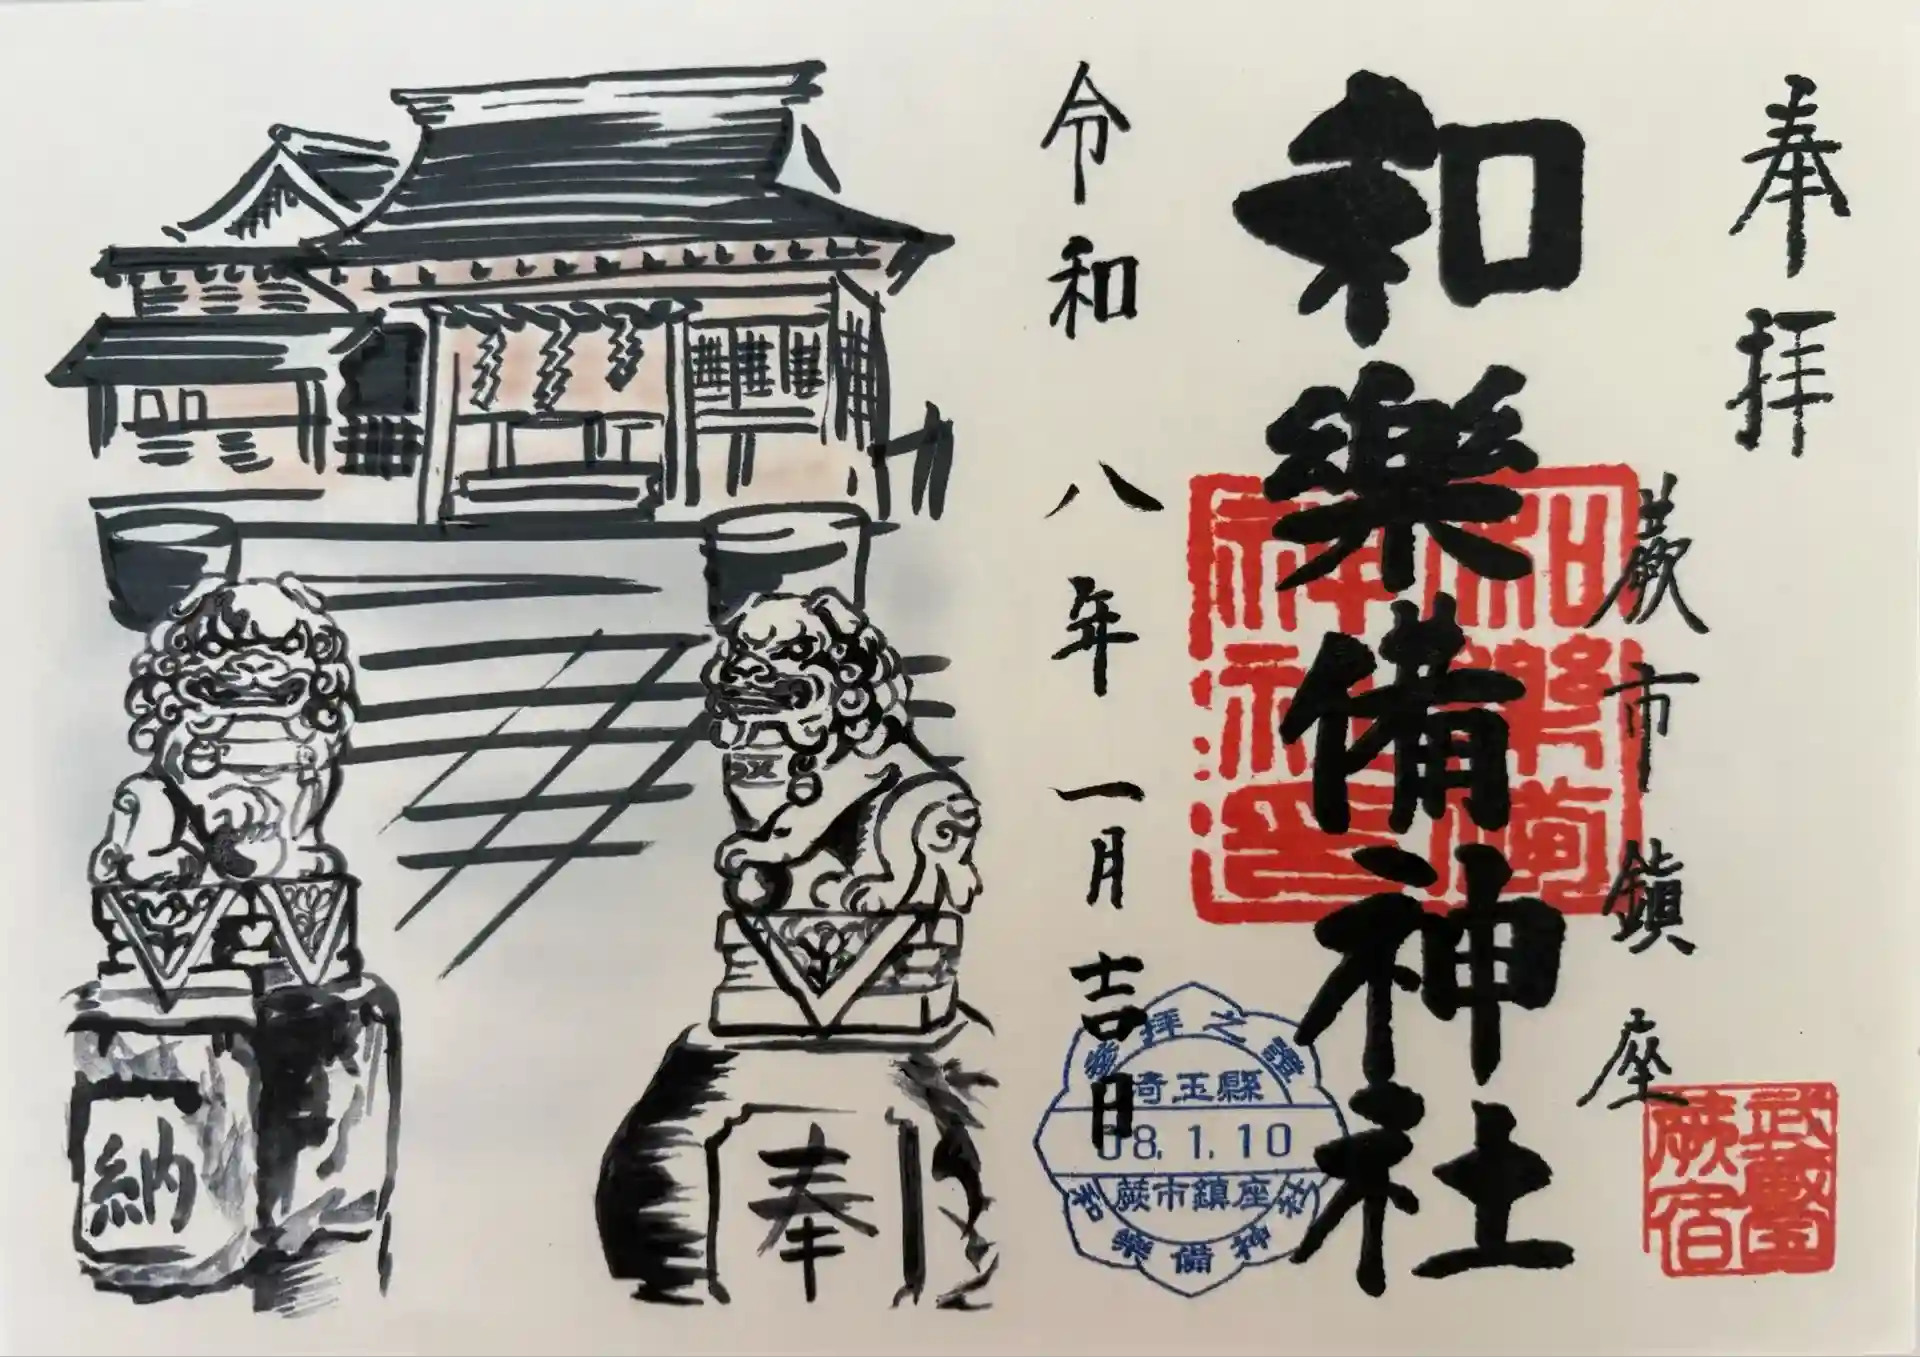 奉拝
蕨市鎮座
武蔵國
蕨宿
和樂備神社
和樂備
神社印
令和八年一月吉日
参拝之證
埼玉縣
08.1.10
蕨市鎮座
和樂備神社
奉
納